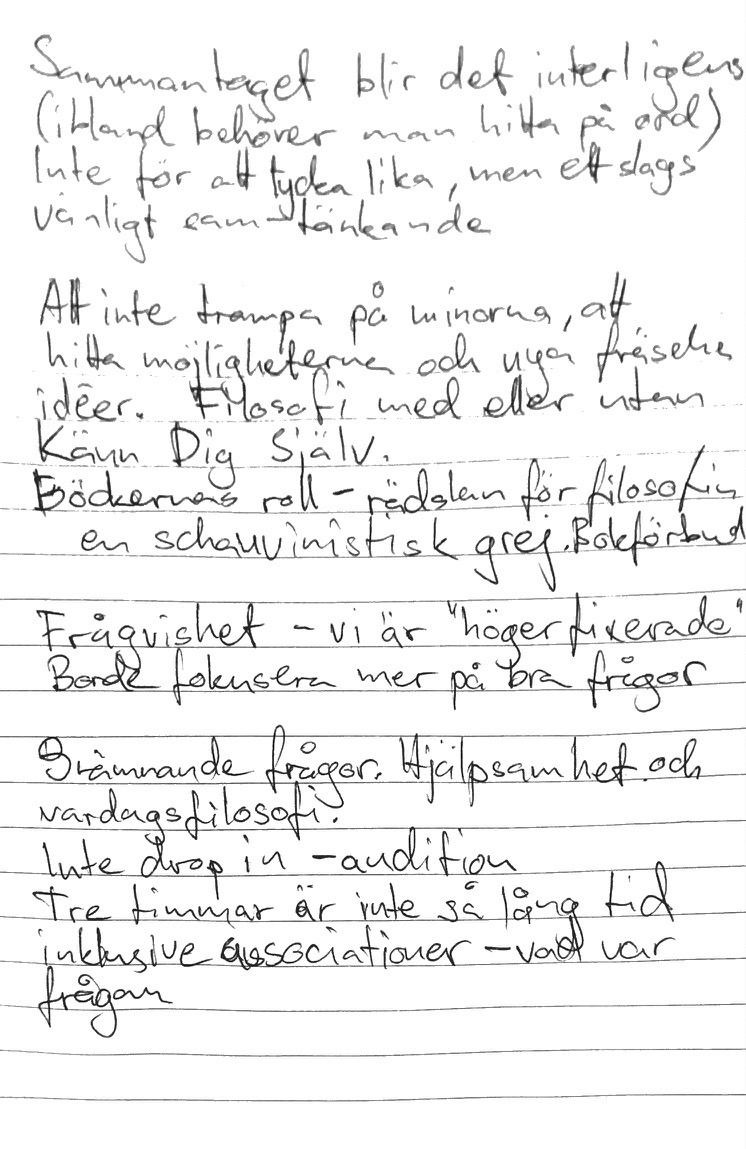 Sammantaget blir det interligens
(ibland behöver man hitta på ord)
Inte för att tycka lika, men ett slags
vänligt sam-tänkande
Att inte trampa på minorna, att
hitta möjligheterna och nya fräscha
idéer. Filosofi med eller utan
Känn Dig Själv.
Böckernas roll - rädslan för filosofin
en schauvinistisk grej. Bokförbud
Frågvishet - vi är "högerfixerade"
Borde fokusera mer på bra frågor
Grämnande frågor. Hjälpsamhet och
vardagsfilosofi.
Inte drop in - audition
Tre timmar är inte så lång tid
inklusive associationer - vad var
frågan